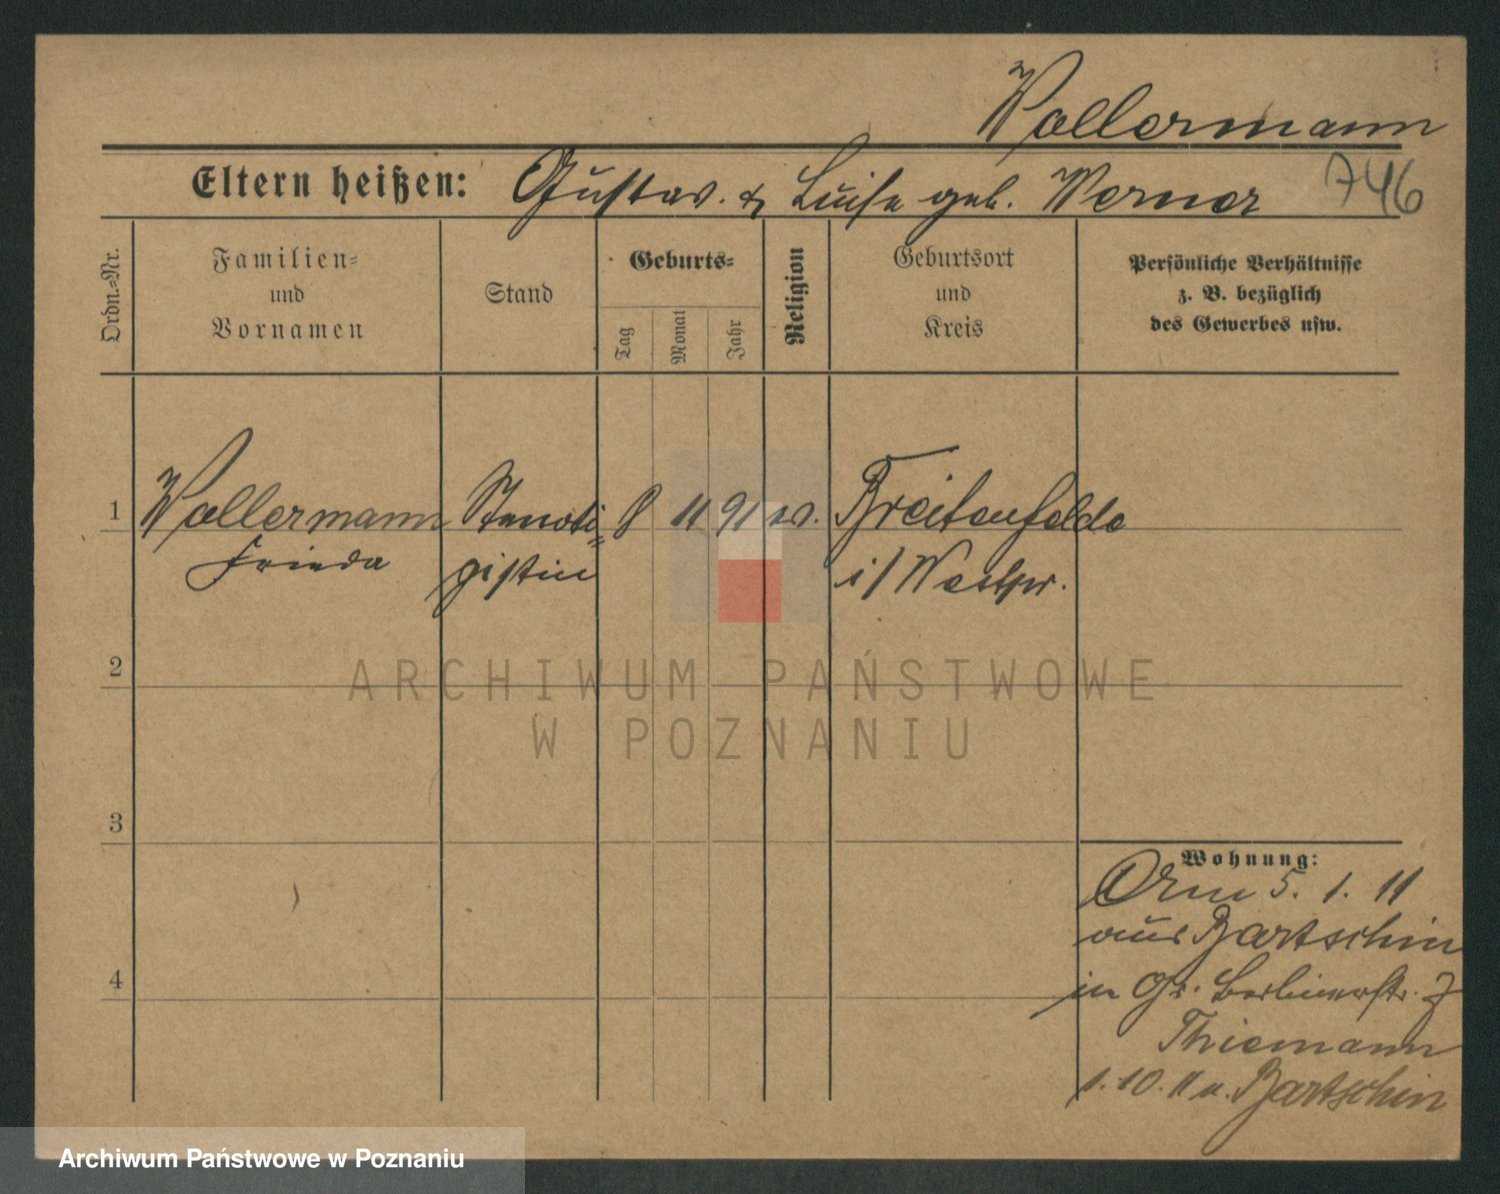 Wollermann
Eltern heißen: Gustav. & Luise geb. Werner 746
Ordn.-Nr.
Familien-
und
Vornamen
Stand
Geburts-
Tag
Monat
Jahr
Religion
Geburtsort
und
Kreis
Persönliche Verhältnisse
z. B. bezüglich
des Gewerbes usw.
1 Wollermann 8 11 91 ev. Breitenfelde
Frieda gistin i/Westpr.
2
3
4
ARCHIWUM PAŃSTWOWE
W POZNANIU
Wohnung:
5. 1. 11
aus Bartschin
in Gr. Berlinerstr. 7
Thiemann
1. 10. 11 n. Bartschin
Archiwum Państwowe w Poznaniu